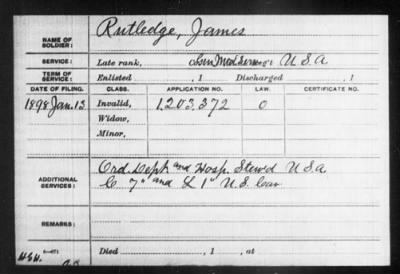 NAME OF SOLDIER: Rutledge, James
SERVICE: Late rank, U.S.A
TERM OF SERVICE: Enlisted , 1 Discharged , 1
DATE OF FILING. CLASS. APPLICATION NO. LAW. CERTIFICATE NO.
1898 Jan. 13 Invalid, 1.203.372 O
Widow,
Minor,
ADDITIONAL SERVICES: Ord. Dept and Hosp. Stew'd U.S.A
C 7" and L 1" U.S. Cav.
REMARKS:
Died , 1 , at